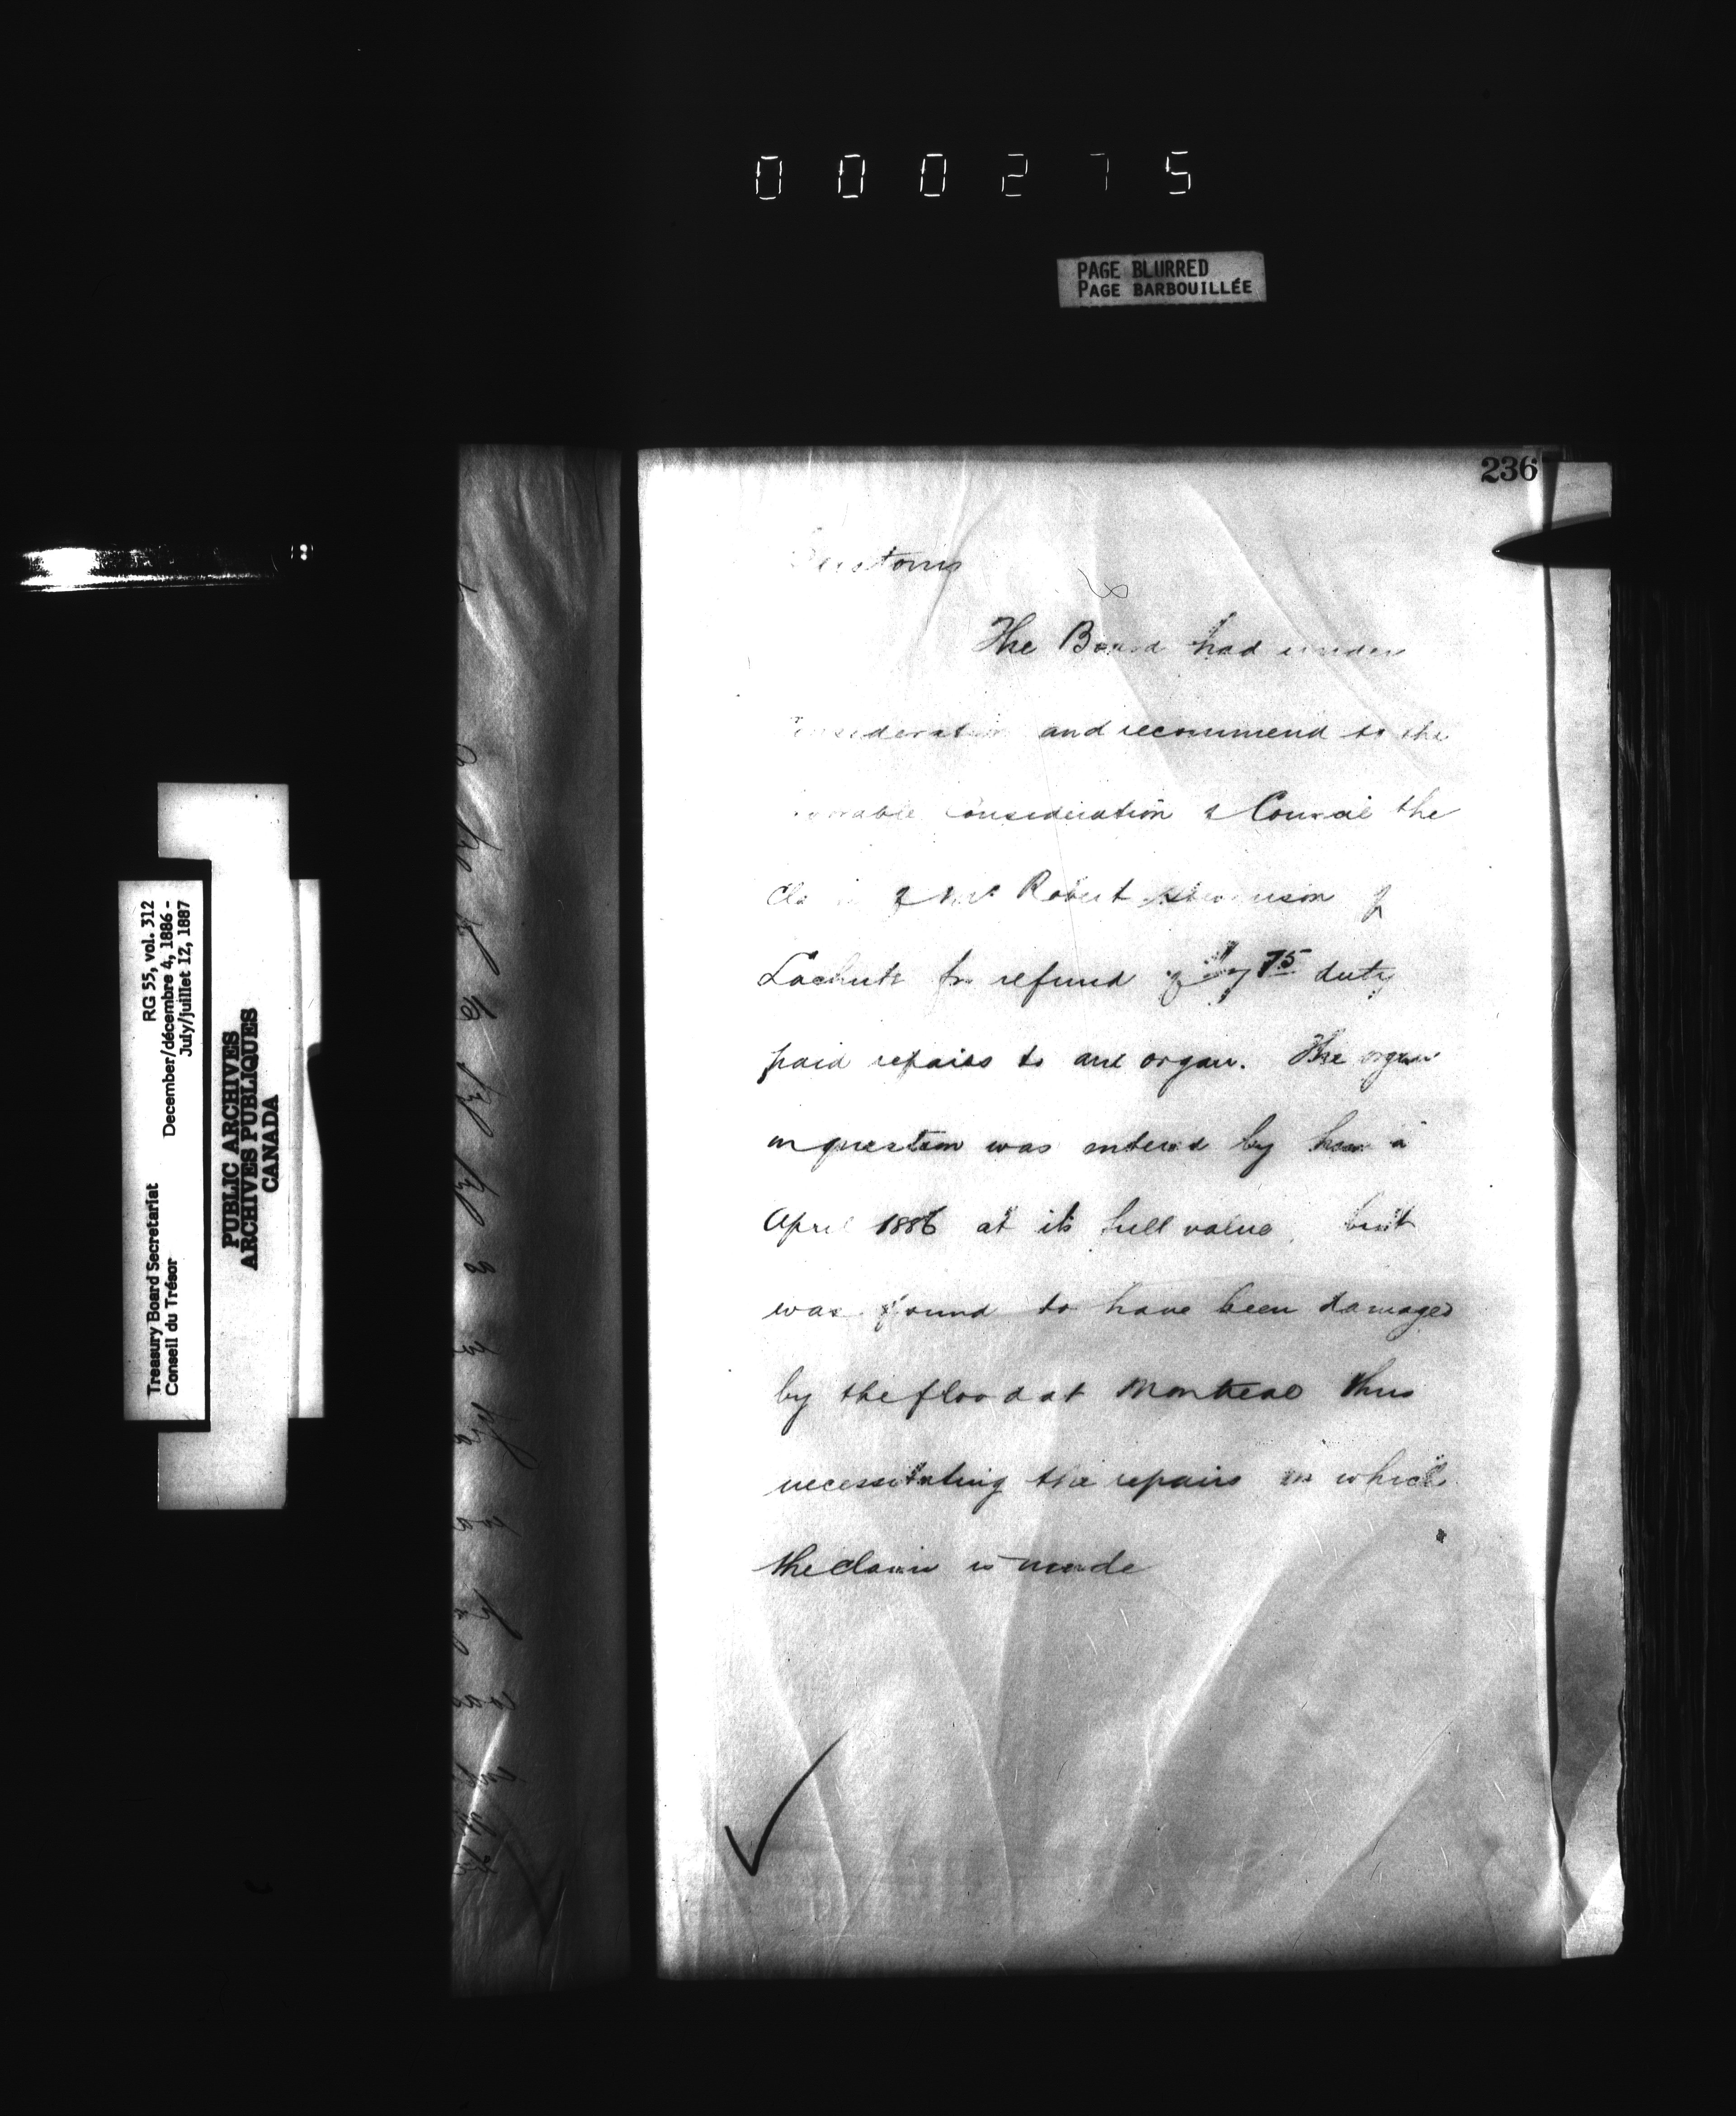 000275
PAGE BLURRED
PAGE BARBOUILLÉE
236
Customs
The Board had under
consideration and recommend to the
favorable consideration of Council the
claim of Mr Robert of
Lachute for refund of 75 duty
paid repairs to an organ. The organ
in question was entered by him in
April 1886 at its full value, but
was found to have been damaged
by the flood at Montreal thus
necessitating the repairs on which
the claim is made
Treasury Board Secretariat RG 55, vol. 312
Conseil du Trésor December/décembre 4, 1886 -
July/juillet 12, 1887
PUBLIC ARCHIVES
ARCHIVES PUBLIQUES
CANADA